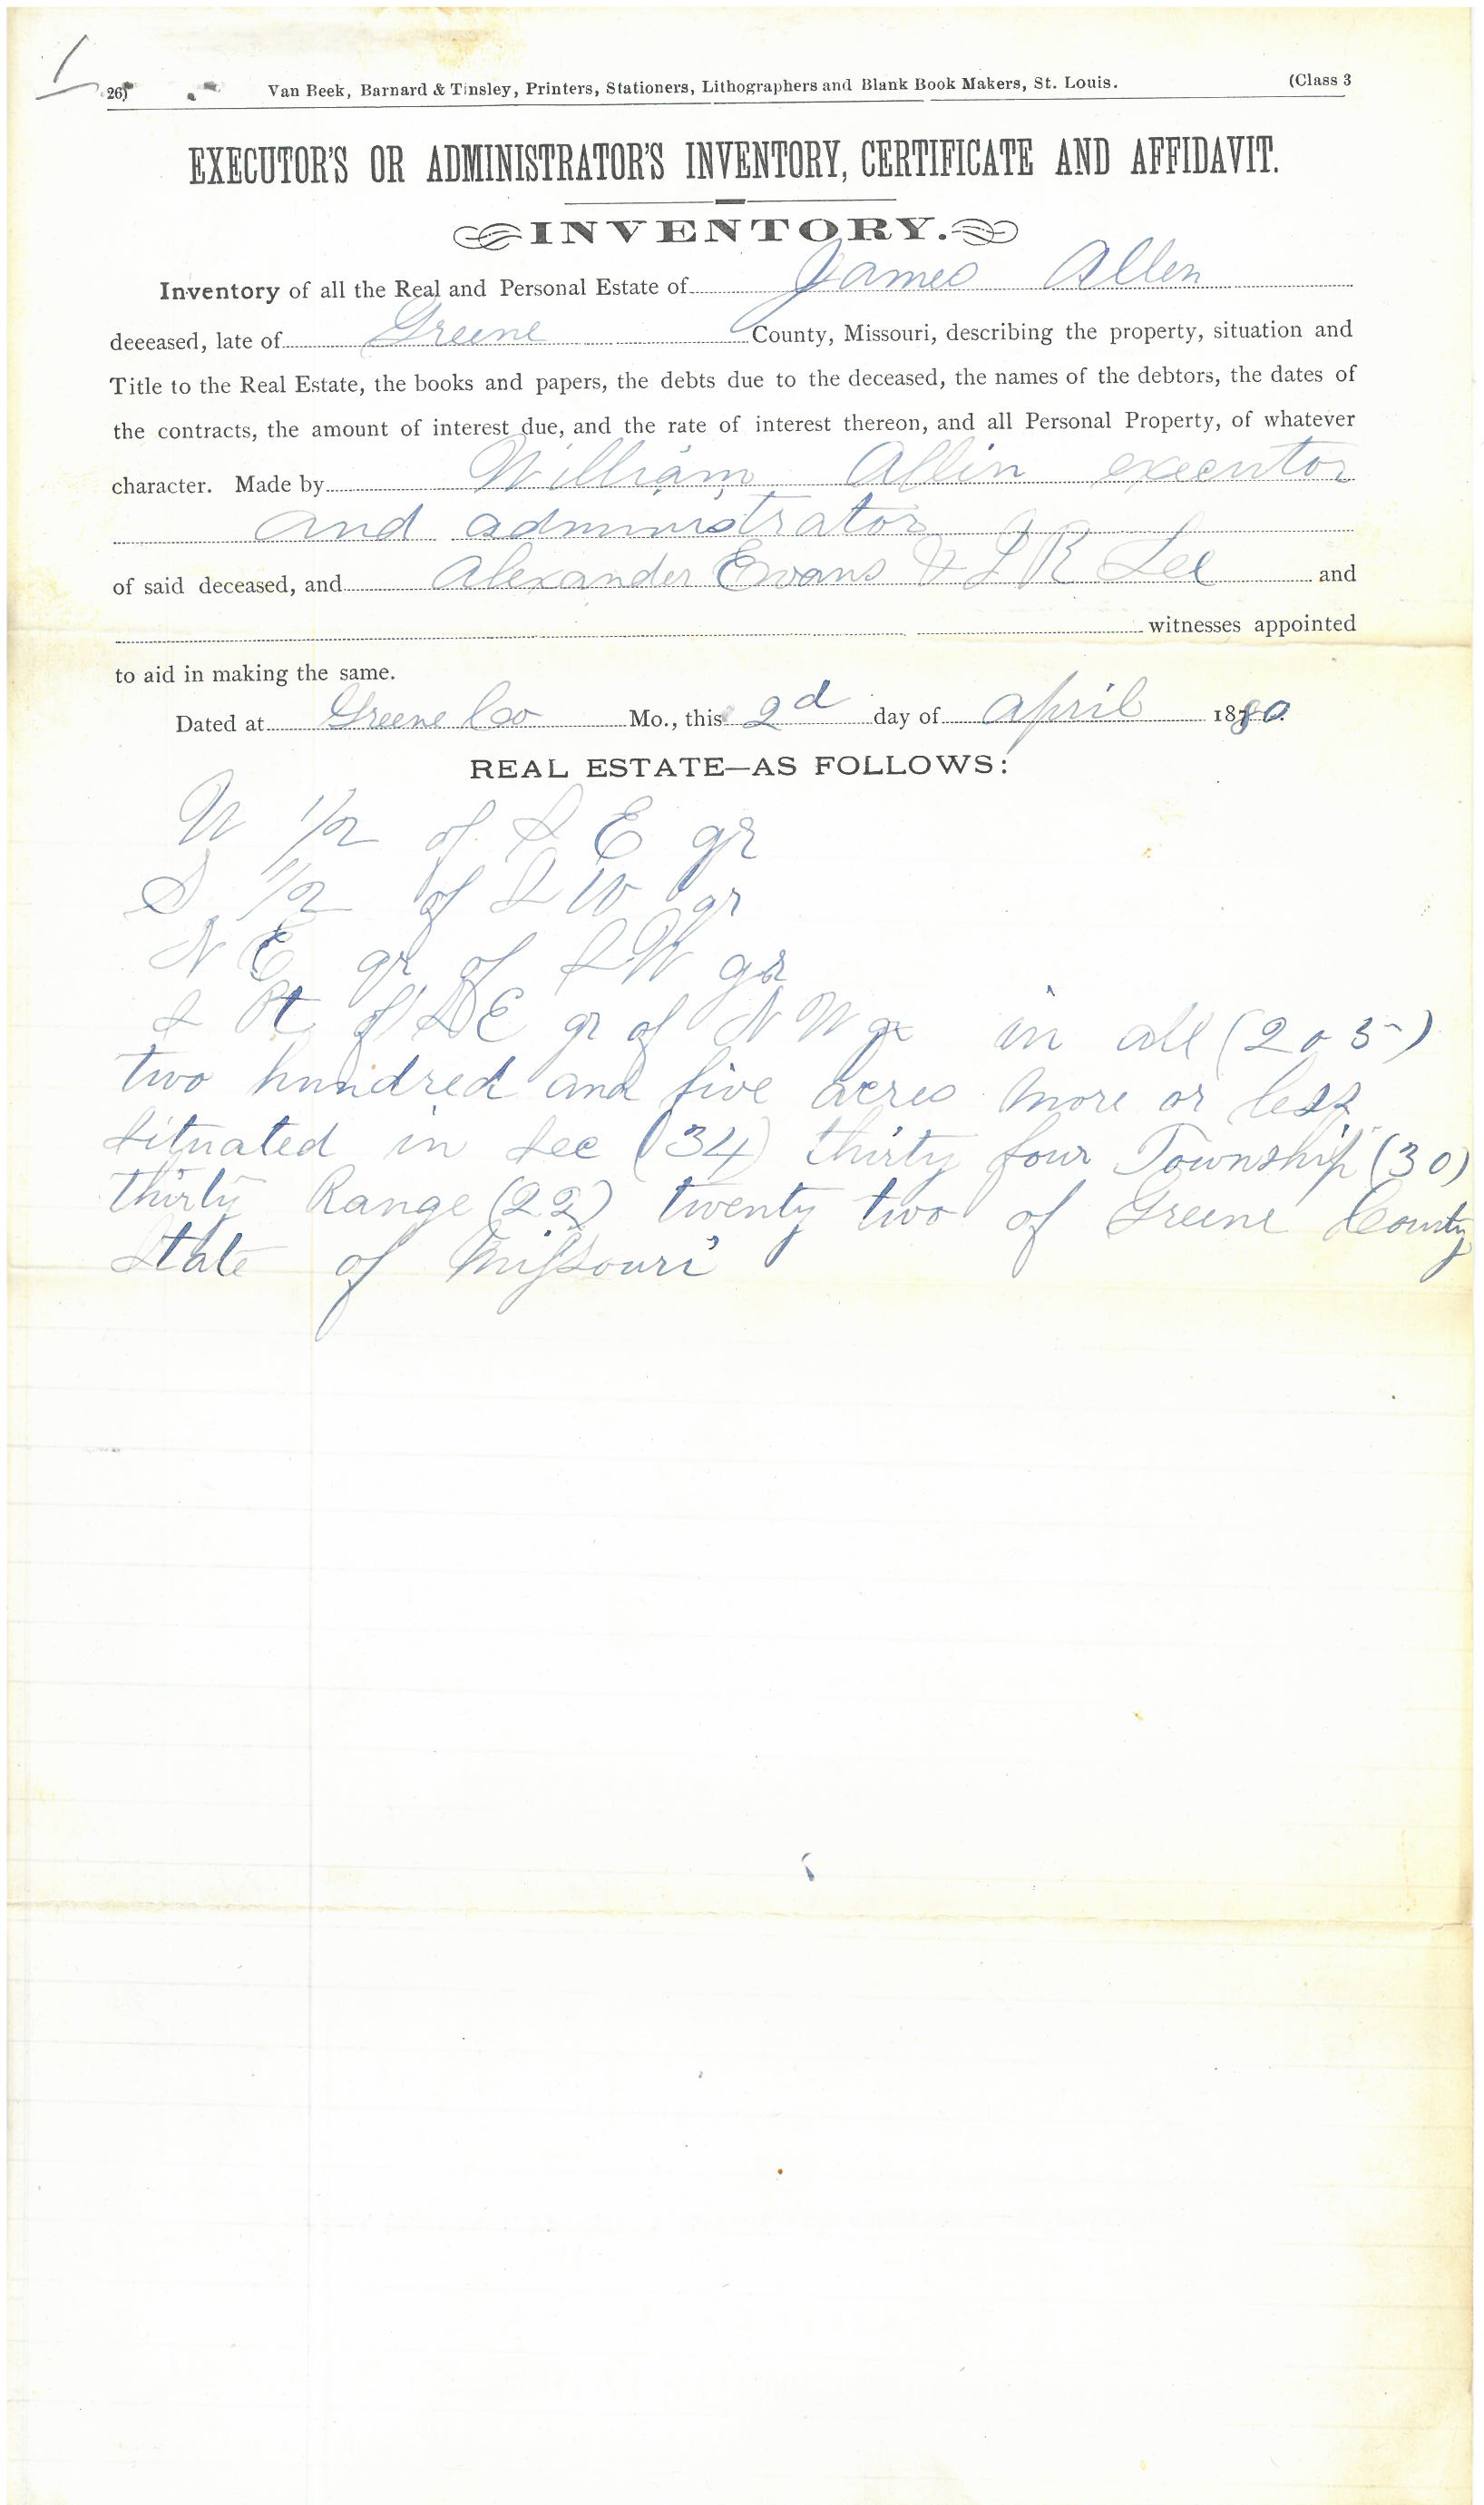 26)
Van Beek, Barnard & Tinsley, Printers, Stationers, Lithographers and Blank Book Makers, St. Louis.
(Class 3
EXECUTOR'S OR ADMINISTRATOR'S INVENTORY, CERTIFICATE AND AFFIDAVIT.
INVENTORY.
Inventory of all the Real and Personal Estate of James Allen
deceased, late of Greene County, Missouri, describing the property, situation and
Title to the Real Estate, the books and papers, the debts due to the deceased, the names of the debtors, the dates of
the contracts, the amount of interest due, and the rate of interest thereon, and all Personal Property, of whatever
character. Made by William Allin executor
and administrator
of said deceased, and Alexander Evans & R Lee and
witnesses appointed
to aid in making the same.
Dated at Greene Co Mo., this 2d day of April 1880.
REAL ESTATE—AS FOLLOWS:
W 1/2 of S E qr
S 1/2 of S W qr
N E qr of S W qr
S Pt of S E qr of N W qr in all (205)
two hundred and five acres more or less
situated in Sec (34) thirty four Township (30)
thirty Range (22) twenty two of Greene County
State of Missouri